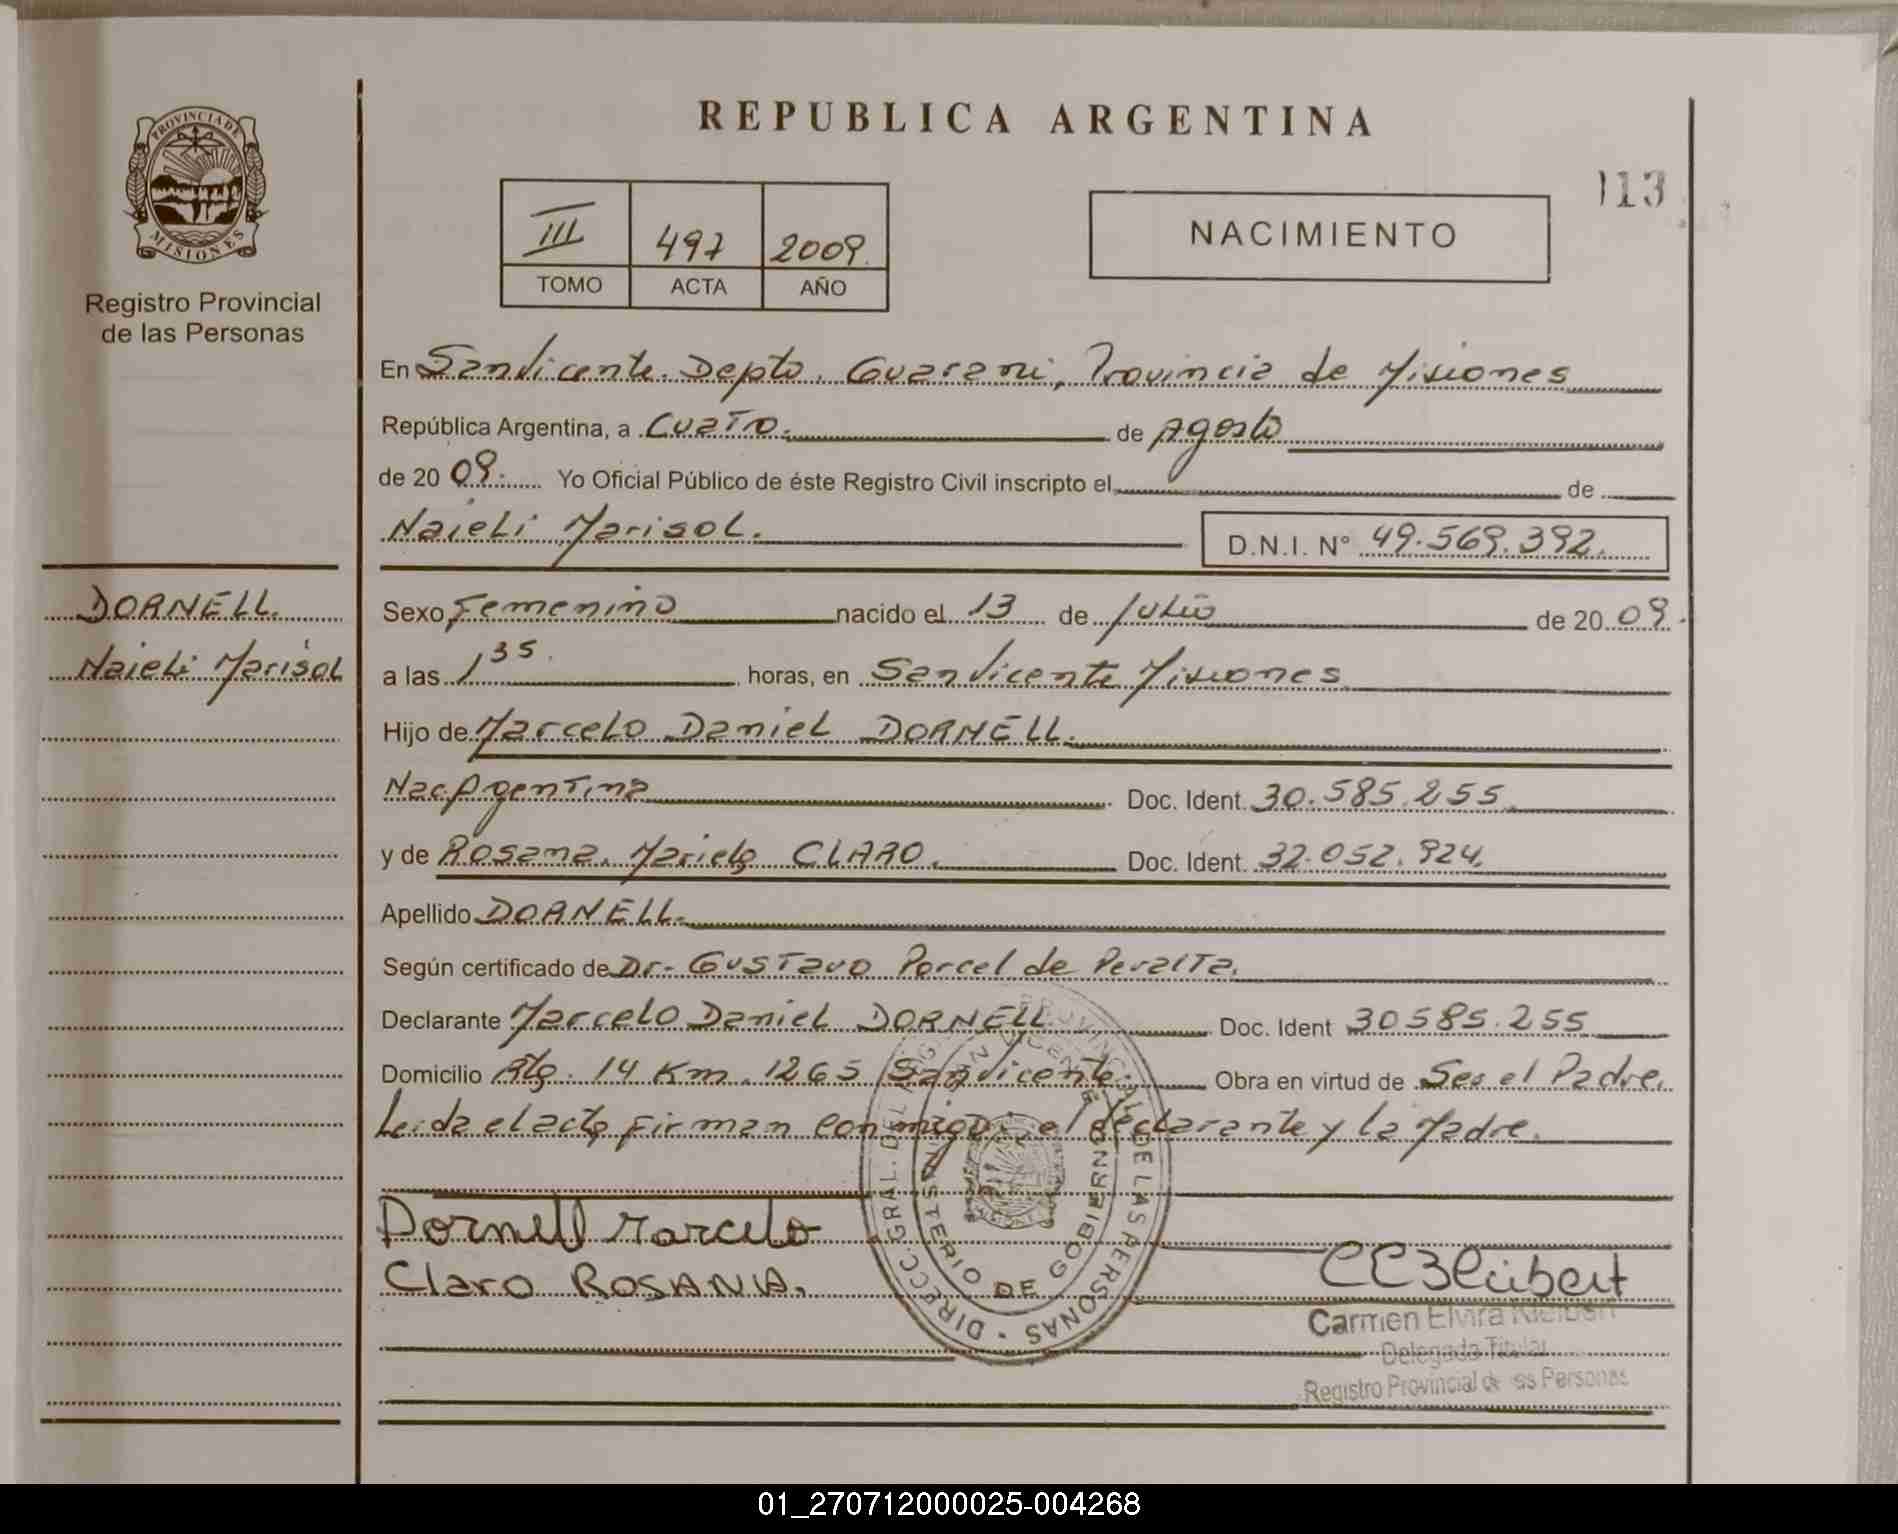 REPUBLICA ARGENTINA
PROVINCIA DE MISIONES
Registro Provincial
de las Personas
113
III 497 2009.
TOMO ACTA AÑO
NACIMIENTO
En San Vicente. Depto. Guarani, Provincia de Misiones
República Argentina, a Cuatro. de Agosto
de 2009. Yo Oficial Público de éste Registro Civil inscripto el de
Naieli Marisol. D.N.I. N° 49.569.392.
DORNELL.
Naieli Marisol
Sexo Femenino nacido el 13 de Julio de 2009.
a las 1 35. horas, en San Vicente Misiones
Hijo de Marcelo Daniel DORNELL.
Nac. Agentina Doc. Ident. 30.585.255
y de Rosana. Mariela CLARO. Doc. Ident. 32.052.924.
Apellido DORNELL.
Según certificado de Dr. Gustavo Porcel de Peralta.
Declarante Marcelo Daniel DORNELL Doc. Ident 30585.255
Domicilio Rta. 14 Km. 1265 San Vicente. Obra en virtud de Ser el Padre.
Leida el acta firman conmigo, el declarante y la Madre.
Dornell Marcelo
Claro ROSANA.
DIRECC. GRAL. DEL REG. PROVINCIAL DE LAS PERSONAS
SAN VICENTE
MINISTERIO DE GOBIERNO
MISIONES
Carmen Elvira Kleibert
Delegada Titular
Registro Provincial de las Personas
01_270712000025-004268